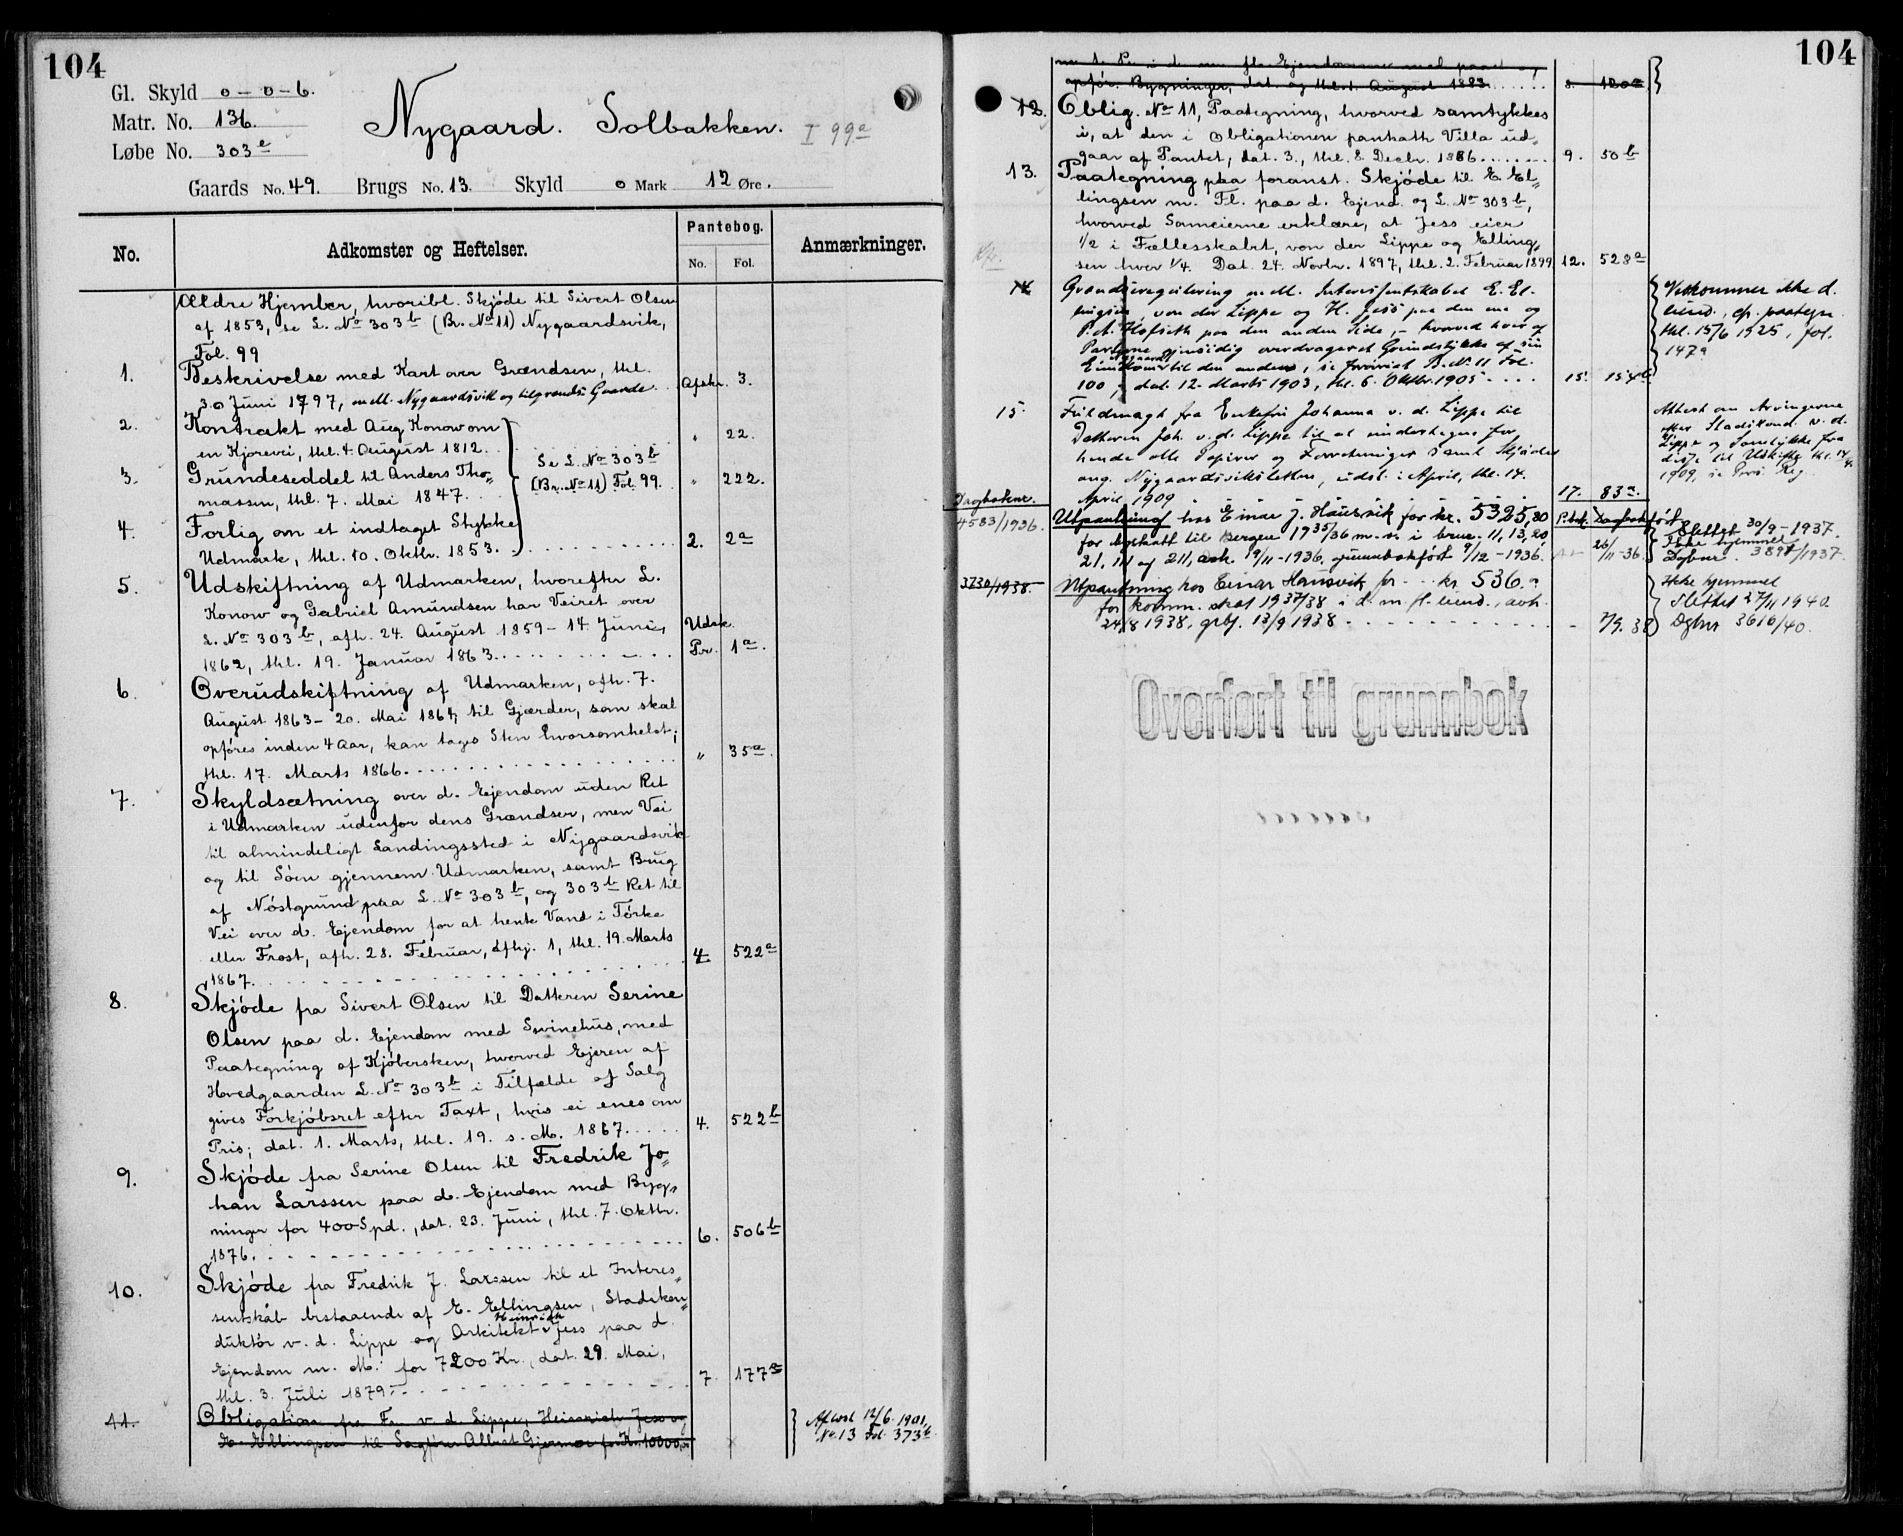 104
Gl. Skyld 0-0-6.
Matr. No. 136.
Løbe No. 303e
Nygaard. Solbakken. I 99a
Gaards No. 49. Brugs No. 13. Skyld 0 Mark 12 Øre.
No.
Adkomster og Heftelser.
Pantebog.
No. Fol.
Anmærkninger.
Ældre Hjemler, hvoribl. Skjøde til Sivert Olsen
af 1853, se L. No 303b (Br. No 11) Nygaardsvik,
Fol. 99
1. Beskrivelse med Kart over Grændsen, thl.
30 Juni 1797, m.M. Nygaardsvik og tilgrænds. Gaarde. Afskr. 3.
2. Kontrakt med Aug Konow om
en Kjørevei, thl. 4. August 1812. " 22.
Se L. No 303b
(Br. No 11) Fol. 99.
3. Grundeseddel til Anders Tho-
massen, thl. 7. Mai 1847. " 222.
4. Forlig om et indtaget Stykke
Udmark, thl. 10. Oktbr. 1853. 2. 2a
5. Udskiftning af Udmarken, hvorefter L.
Konow og Gabriel Amundsen har Veiret over
L. No 303b, afh. 24. August 1859 - 14. Juni
1862, thl. 19. Januar 1863. Udsk. Pr. 1a.
6. Overudskiftning af Udmarken, afh. 7.
August 1863 - 20. Mai 1864, til Gjærder, som skal
opføres inden 4 Aar, kan tages Sten hvorsomhelst;
thl. 17. Marts 1866. " 35a.
7. Skyldsætning over d. Ejendom uden Ret
i Udmarken udenfor dens Grændser, men Vei
til almindeligt Landingssted i Nygaardsvik
og til Søen gjennem Udmarken, samt Brug
af Nøstgrund paa L. No 303b, og 303b Ret til
Vei over d. Ejendom for at hente Vand i Tørke
eller Frost, afh. 28. Februar, afhj. 1, thl. 19. Marts
1867. 4 522a
8. Skjøde fra Sivert Olsen til Datteren Serine
Olsen paa d. Ejendom med Svinehus, med
Paategning af Kjøbersken, hvorved Ejeren af
Hovedgaarden L. No 303b i Tilfælde af Salg
gives Forkjøbsret efter Taxt, hvis ei enes om
Pris; dat. 1. Marts, thl. 19. s. M. 1867. 4. 522b
9. Skjøde fra Serine Olsen til Fredrik Jo-
han Larssen paa d. Ejendom med Byg-
ninger for 400 Spd., dat. 23. Juni, thl. 7. Oktbr.
1876. 6. 506b
10. Skjøde fra Fredrik J. Larssen til et Interes-
sentskab bestaaende af E. Ellingsen, Stadskon-
duktør v. d. Lippe og Arkitekt Heinrich Jess paa d.
Ejendom m. M. for 7200 Kr., dat. 29. Mai,
thl. 3. Juli 1879. 7. 177a
11. Obligation fra Fr. v. d. Lippe, Heinrich Jess og
E. Ellingsen til Sagfører Albert Gjermoe for Kr. 10000,00
Aflæst 12/6 1901,
No 13 Fol. 373b.
104
m. fl. Ejendomme med paast.
opfør. Bygninger, dat. og thl. 1. August 1883. 8. 120a
12. Oblig. No 11, Paategning, hvorved samtykkes
i, at den i Obligationen panthatte Villa ud-
gaar af Pantet, dat. 3., thl. 8. Decbr. 1886. 9. 50b
13. Paategning paa foranst. Skjøde til E. El-
lingsen m. Fl. paa d. Ejend. og L. No 303b,
hvorved Sameierne erklære, at Jess eier
1/2 i Fællesskabet, von der Lippe og Elling-
sen hver 1/4. Dat. 24. Novbr. 1897, thl. 2. Februar 1899 12. 528a
14. Grændseregulering m. M. Interessentskabet E. El-
lingsen, von der Lippe og H. Jess paa den ene og
P. A. Hofseth paa den anden Side, - hvorved hver af
Parterne gjensidig overdraget Grundstykke af sin
Eiendom til den anden, se forøvrigt B. No 11 Fol.
100, dat. 12. Marts 1903, thl. 6. Oktbr. 1905 15. 154b
Vedkommer ikke d.
eiend., cfr. paategn.
thl. 15/6 1925, fol.
147a
15. Fuldmagt fra Enkefru Johanna v. d. Lippe til
Datteren Joh. v. d. Lippe til at undertegne for
hende alle Papirer og Forretninger samt Skjøder
ang. Nygaardsviksletten, udst. i April, thl. 14.
April 1909 17. 83a.
Attest om Arvingerne
efter Stadskond. v. d.
Lippe og Samtykke fra
disse til Udskiftg thl. 14/4
1909, se Pers. Reg.
Dagboknr. 4583/1936. Utpantning hos Einar J. Hausvik for kr. 5325,80
for byskatt til Bergen 1935/36 m.v. i brnr. 11, 13, 20
21, 111 og 211, avh. 19/11-1936, grunnbokført 9/12-1936. 26/11-36.
Slettet 30/9-1937.
Ikke hjemmel
Dagbnr. 3898/1937
3730/1938. Utpantning hos Einar Hausvik for kr. 536.-
for komm. skat 1937/38 i d. m. fl. eiend., avh.
24/8 1938, grbf. 13/9 1938 - 7/9. 38
Ikke hjemmel
Slettet 27/11 1940.
Dgbnr 3616/40.
Overført til grunnbok